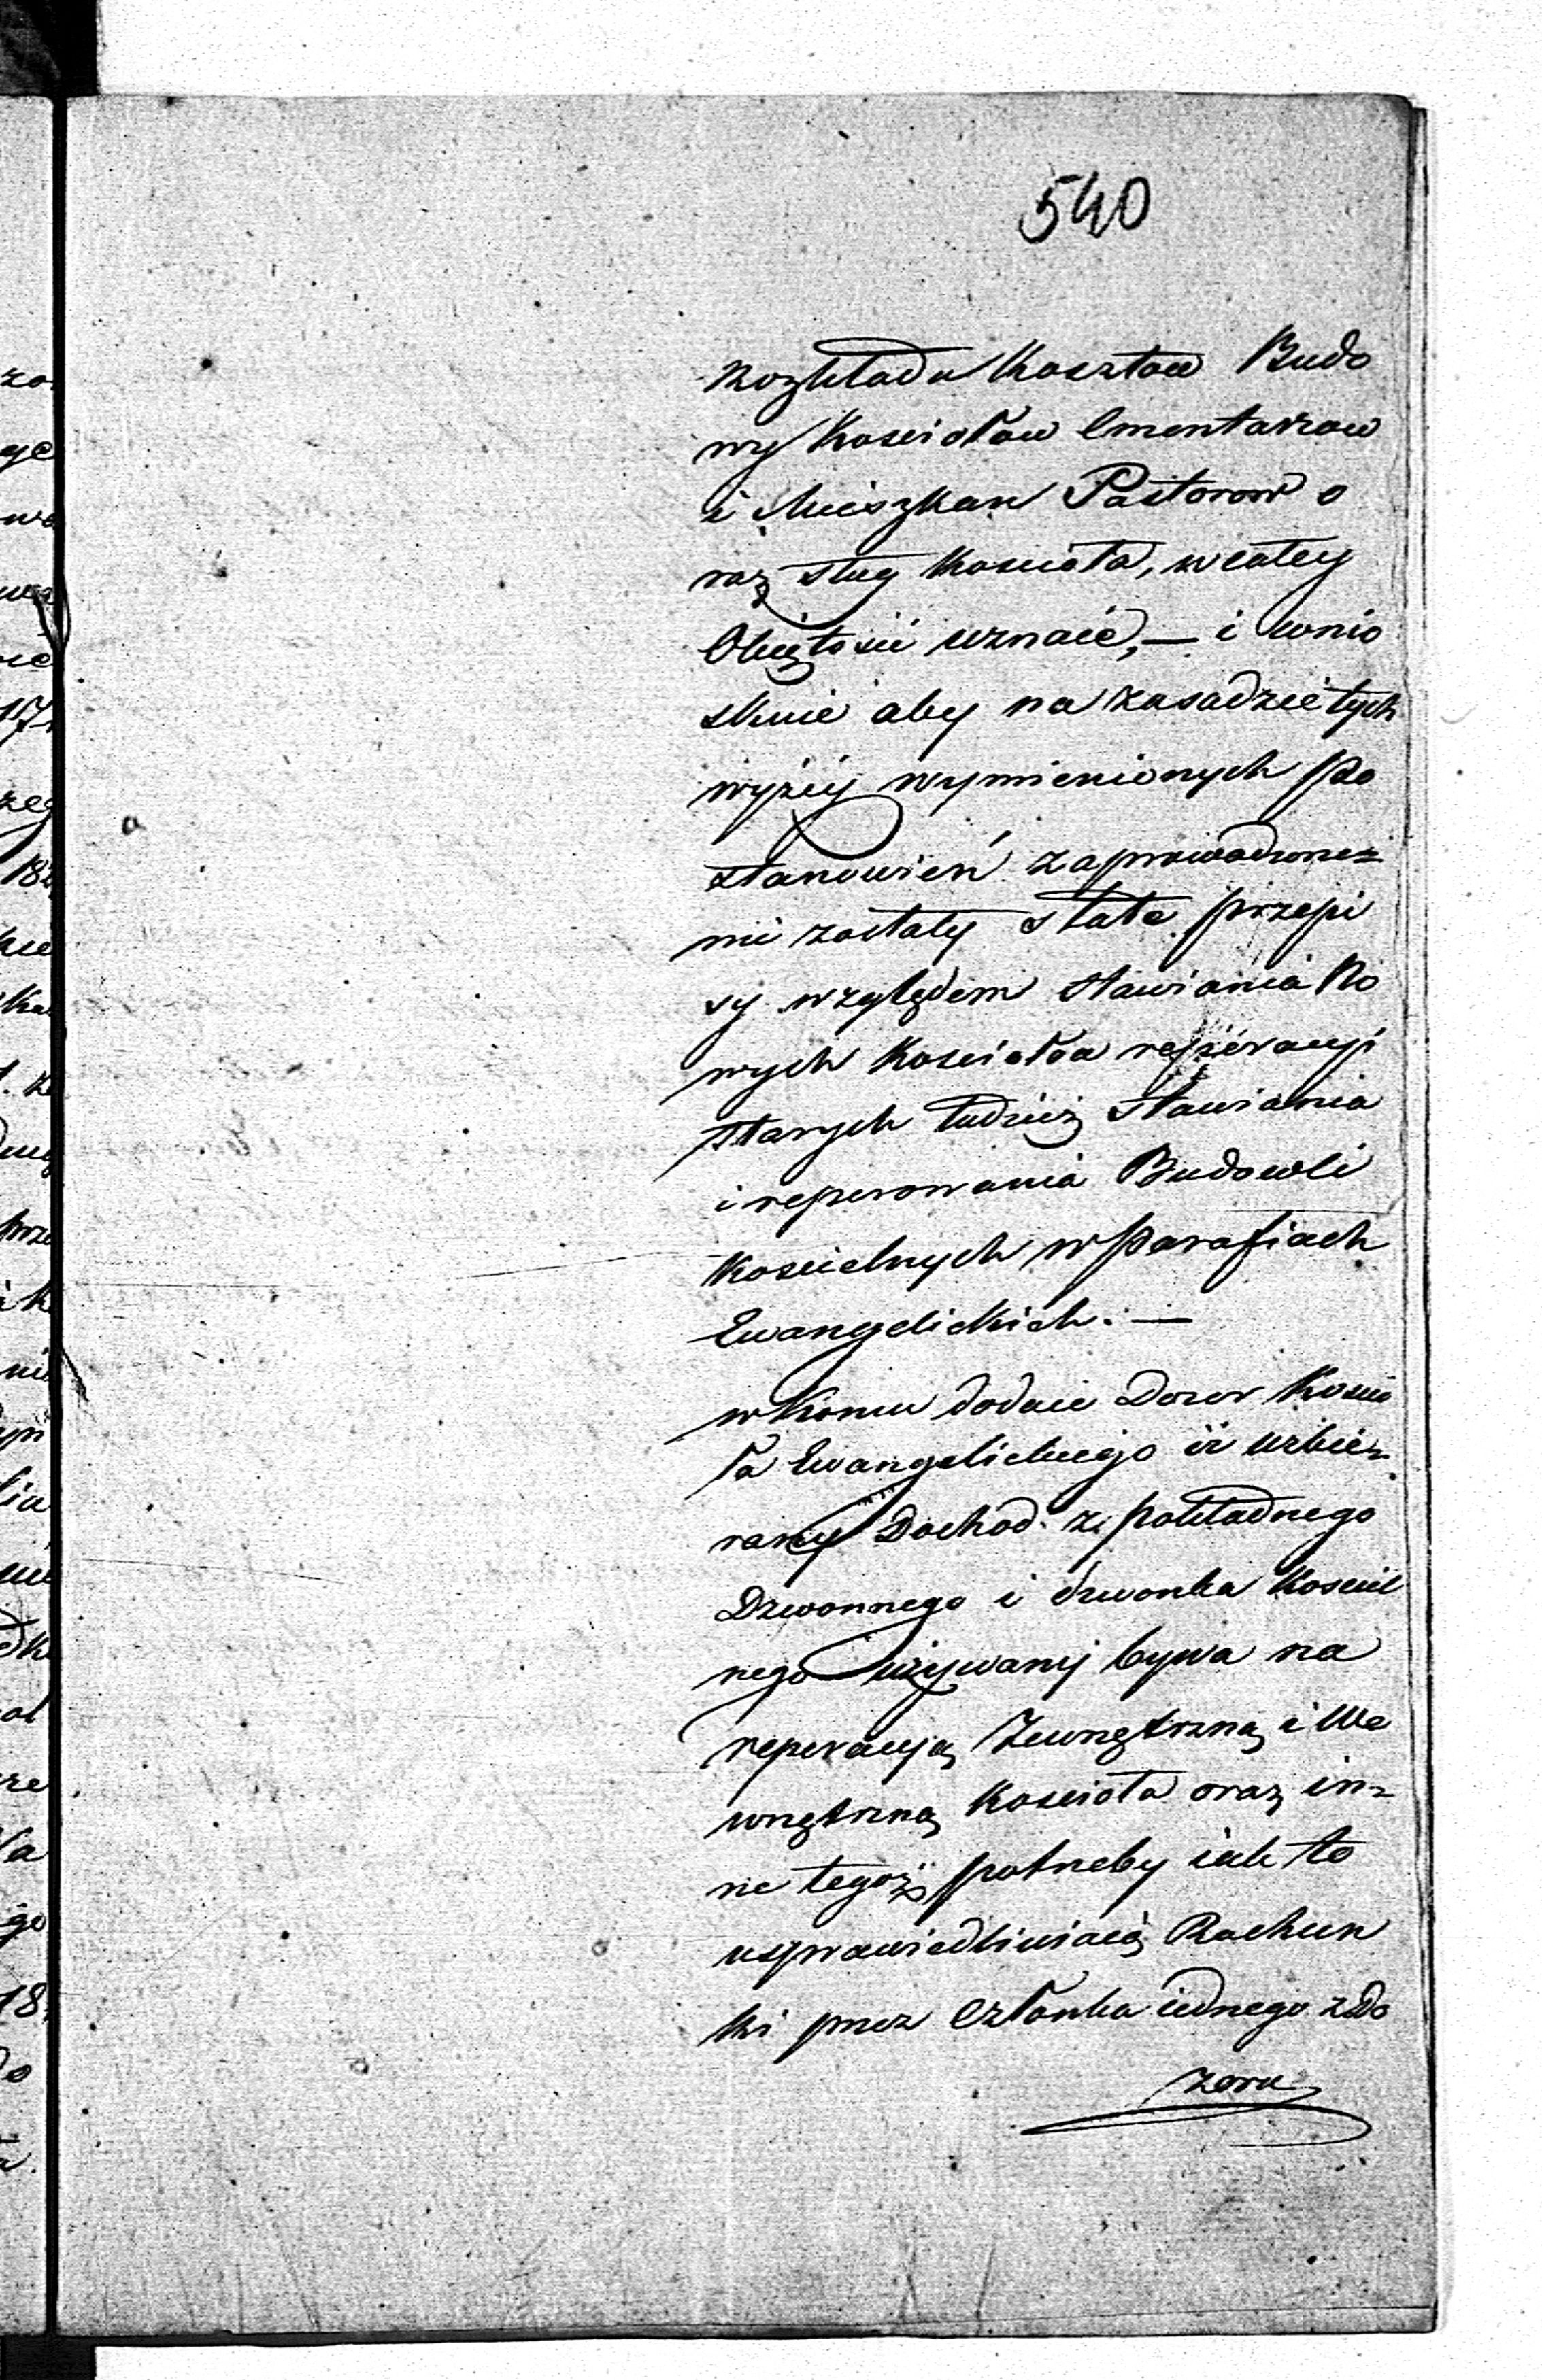 540
Rozkładu Kosztow Budo
wy Kosciołow Cmentarzow
i Mieszkan Pastorow o
raz sług Koscioła, w całey
Obiętosci uznaie, — i wnio
skuie aby na zasadzie tych
wyżey wymienionych po
stanowień zaprowadzone=
mi zostały stałe przepi
sy względem stawiania No
wych Kosciołow reperacyi
starych tudzież stawiania
i reperowania Budowli
Koscielnych w Parafiach
Ewangelickich. —
w Koncu dodaie Dozor Koscio
ła Ewangelickiego iż uzbie=
rany Dochod z pokładnego
Dzwonnego i dzwonka Kosciel
nego używany bywa na
reperacyią Zewnętrzną i We
wnętrzną Kosciola oraz in=
ne tegoż potrzeby iak to
usprawiedliwiaią Rachun
ki przez Członka iednego z Do
zoru